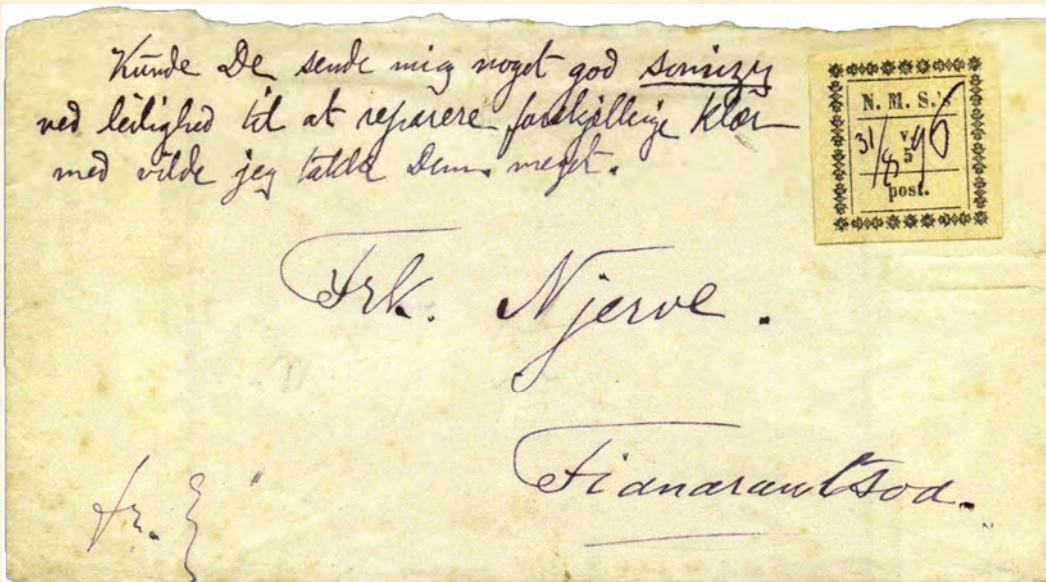 Kunde De sende mig noget god somizy
ved leilighed til at reparere forskjellige Klær
med vilde jeg takke Dem meget.
N. M. S.'s
v.
5
31/8 96
post.
Frk. Njerve.
Fianarantsoa.
fr.